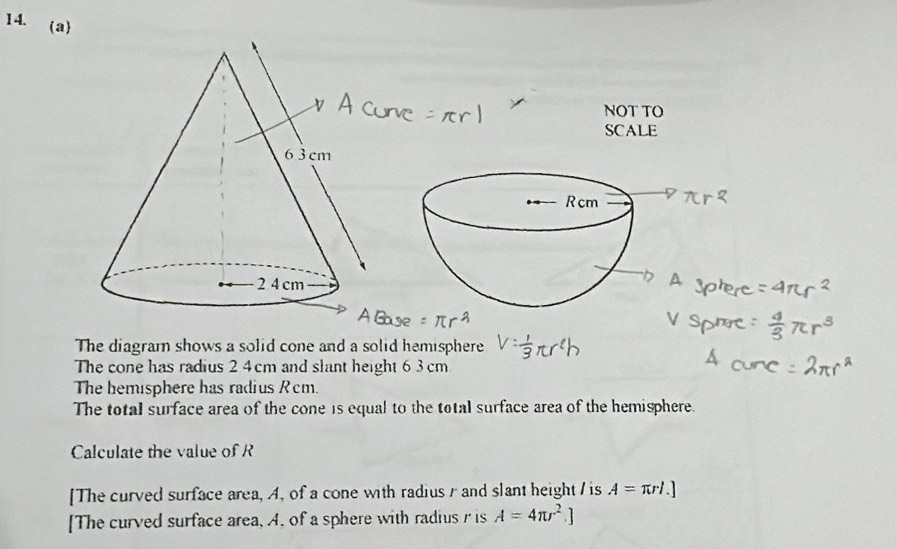 14. (a)
A curve = πrl
NOT TO
SCALE
6 3 cm
R cm
πr²
2 4 cm
A Sphere = 4πr²
A Base = πr²
V Sphere = 4/3 πr³
The diagram shows a solid cone and a solid hemisphere
V = 1/3 πr²h
The cone has radius 2 4 cm and slant height 6 3 cm
A curve = 2πr²
The hemisphere has radius R cm.
The total surface area of the cone is equal to the total surface area of the hemisphere.
Calculate the value of R
[The curved surface area, A, of a cone with radius r and slant height l is A = πrl.]
[The curved surface area, A, of a sphere with radius r is A = 4πr².]